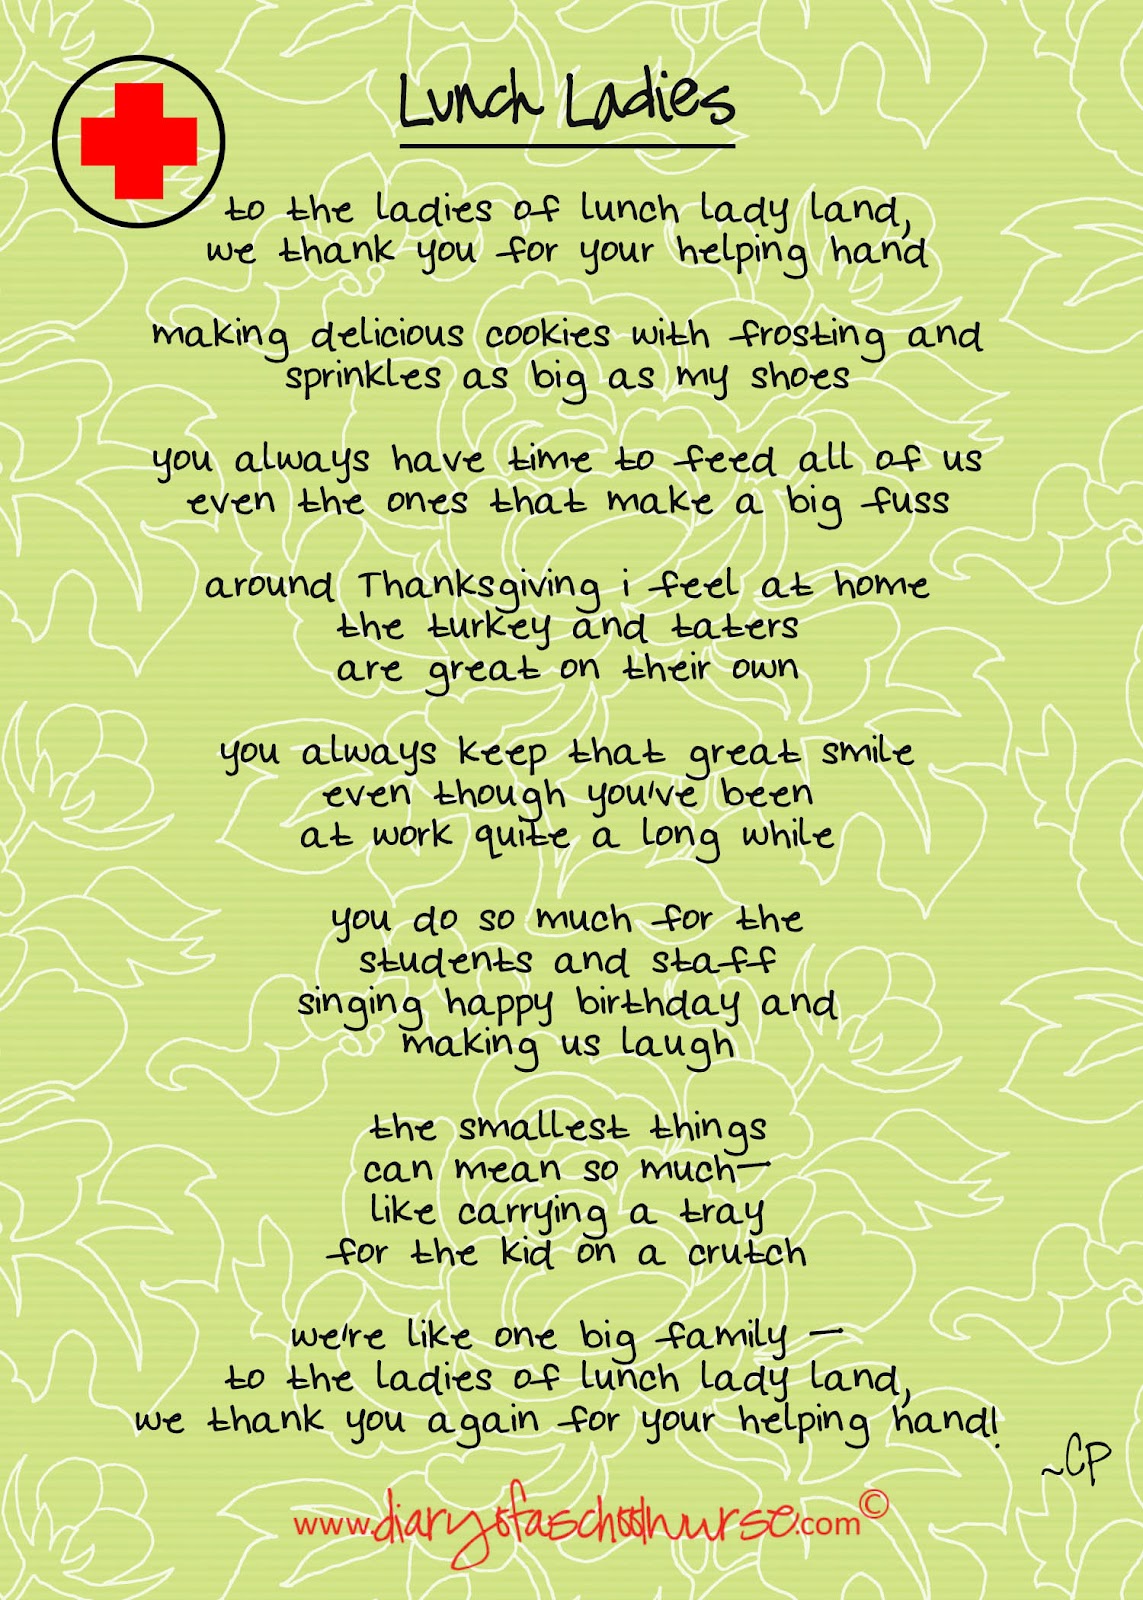 Lunch Ladies
to the ladies of lunch lady land,
we thank you for your helping hand
making delicious cookies with frosting and
sprinkles as big as my shoes
you always have time to feed all of us
even the ones that make a big fuss
around Thanksgiving i feel at home
the turkey and taters
are great on their own
you always keep that great smile
even though you've been
at work quite a long while
you do so much for the
students and staff
singing happy birthday and
making us laugh
the smallest things
can mean so much—
like carrying a tray
for the kid on a crutch
we're like one big family —
to the ladies of lunch lady land,
we thank you again for your helping hand!
~CP
www.diaryofaschoolnurse.com©